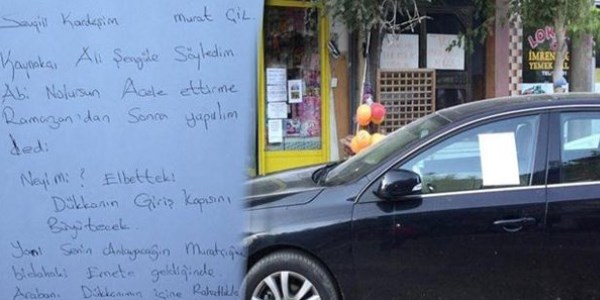 Sevgili Kardeşim Murat GİL
Kaynakçı Ali Şengüle Söyledim
Abi Nolursun Acele ettirme
Ramazan'dan Sonra yapalım
dedi
Neyi mi? Elbetteki
Dükkanın Giriş Kapısını
Büyütecek.
Yani Senin Anlayacağın Muratçığım
bidahaki Emete geldiğinde.
Arabanı Dükkanımın içine Rahatlıkla
LOK
İMREN
YEMEK